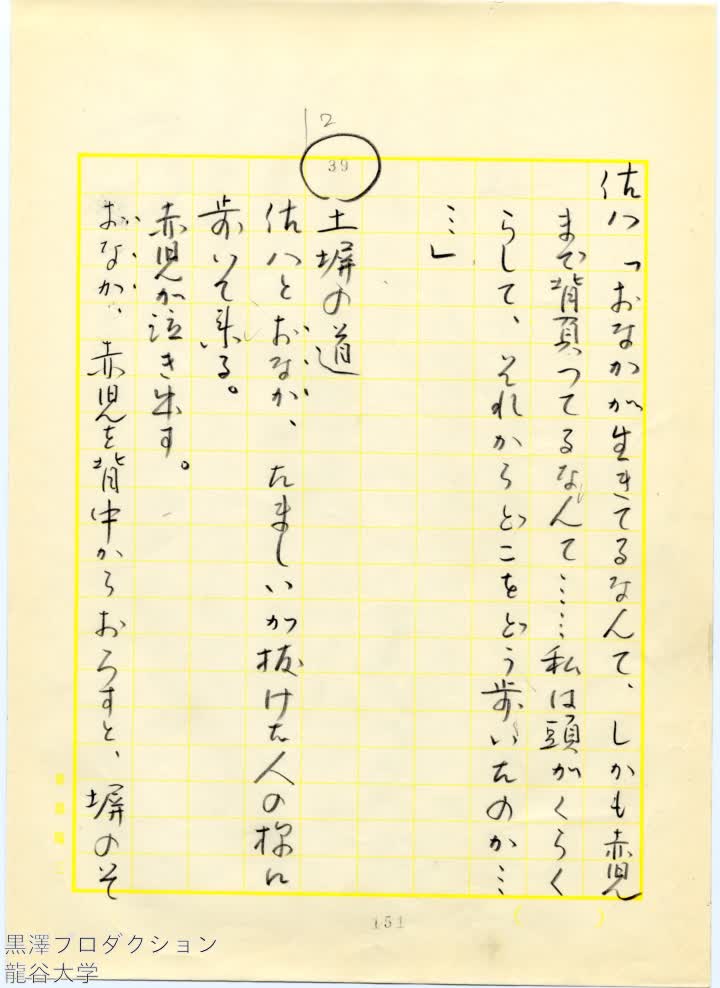 2
39
佐八「おなかが生きてるなんて、しかも赤児
まで背負つてるなんて……私は頭がくらく
らして、それからどこをどう歩いたのか…
…」
土塀の道
佐八とおなか、たましいが抜けた人の様に
歩いて来る。
赤児が泣き出す。
おなか、赤児を背中からおろすと、塀のそ
151
黒澤プロダクション
龍谷大学